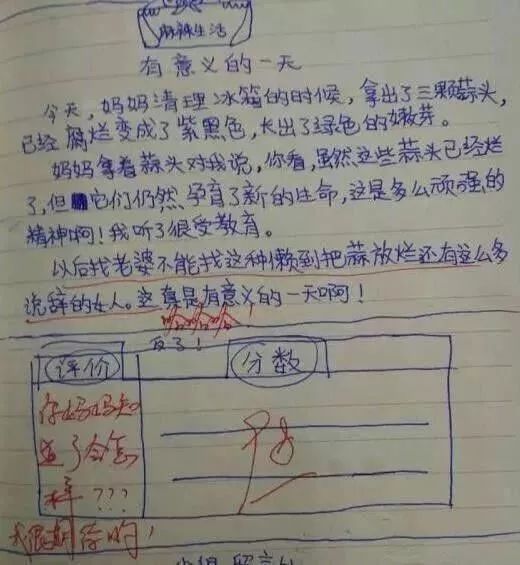 麻辣生活
有意义的一天
今天，妈妈清理冰箱的时候，拿出了三颗蒜头，
已经腐烂变成了紫黑色，长出了绿色的嫩芽。
妈妈拿着蒜头对我说，你看，虽然这些蒜头已经烂
了，但它们仍然孕育了新的生命，这是多么顽强的
精神啊！我听了很受教育。
以后找老婆不能找这种懒到把蒜放烂还有这么多
说辞的女人。这真是有意义的一天啊！
哈哈哈
反了！
评价
分数
你妈妈知
道了会怎
样？？？
我很期待哟！
优